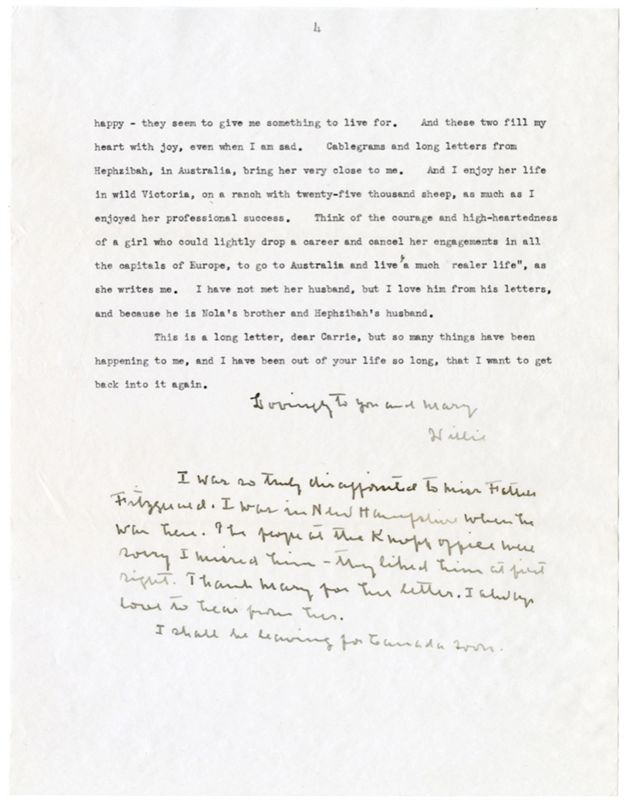 4
happy - they seem to give me something to live for. And these two fill my
heart with joy, even when I am sad. Cablegrams and long letters from
Hephzibah, in Australia, bring her very close to me. And I enjoy her life
in wild Victoria, on a ranch with twenty-five thousand sheep, as much as I
enjoyed her professional success. Think of the courage and high-heartedness
of a girl who could lightly drop a career and cancel her engagements in all
the capitals of Europe, to go to Australia and live "a much realer life", as
she writes me. I have not met her husband, but I love him from his letters,
and because he is Nola's brother and Hephzibah's husband.
This is a long letter, dear Carrie, but so many things have been
happening to me, and I have been out of your life so long, that I want to get
back into it again.
Lovingly to you and Mary
Willie
I was so truly disappointed to miss Father
Fitzgerald. I was in New Hampshire when he
was here. The people at the Knopf office were
sorry I missed him - they liked him at first
sight. Thank Mary for her letter. I always
love to hear from her.
I shall be leaving for Canada soon.